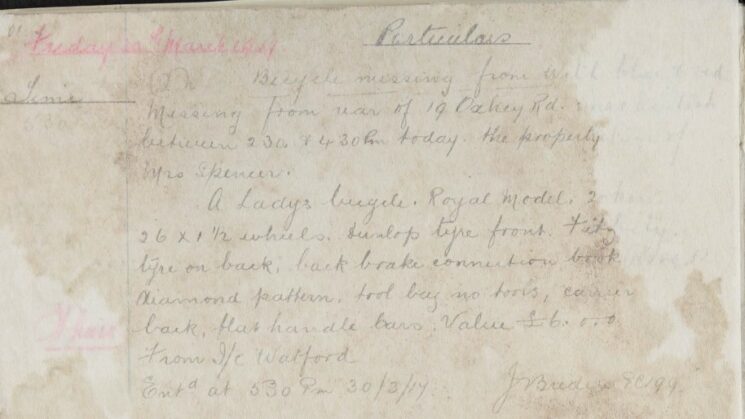 Friday 30th March 1917
Particulars
Time
Bicycle missing from
Missing from rear of 19 Oakey Rd.
between 230 & 430 Pm today. the property
Mrs Spencer.
A Ladys bicycle. Royal Model. 2
26 x 1½ wheels. Dunlop tyre front.
tyre on back, back brake connection
diamond pattern. tool bag no tools, carrier
back, flat handle bars. Value £6. 0. 0
From I/c Watford
Entd at 530 Pm 30/3/17.